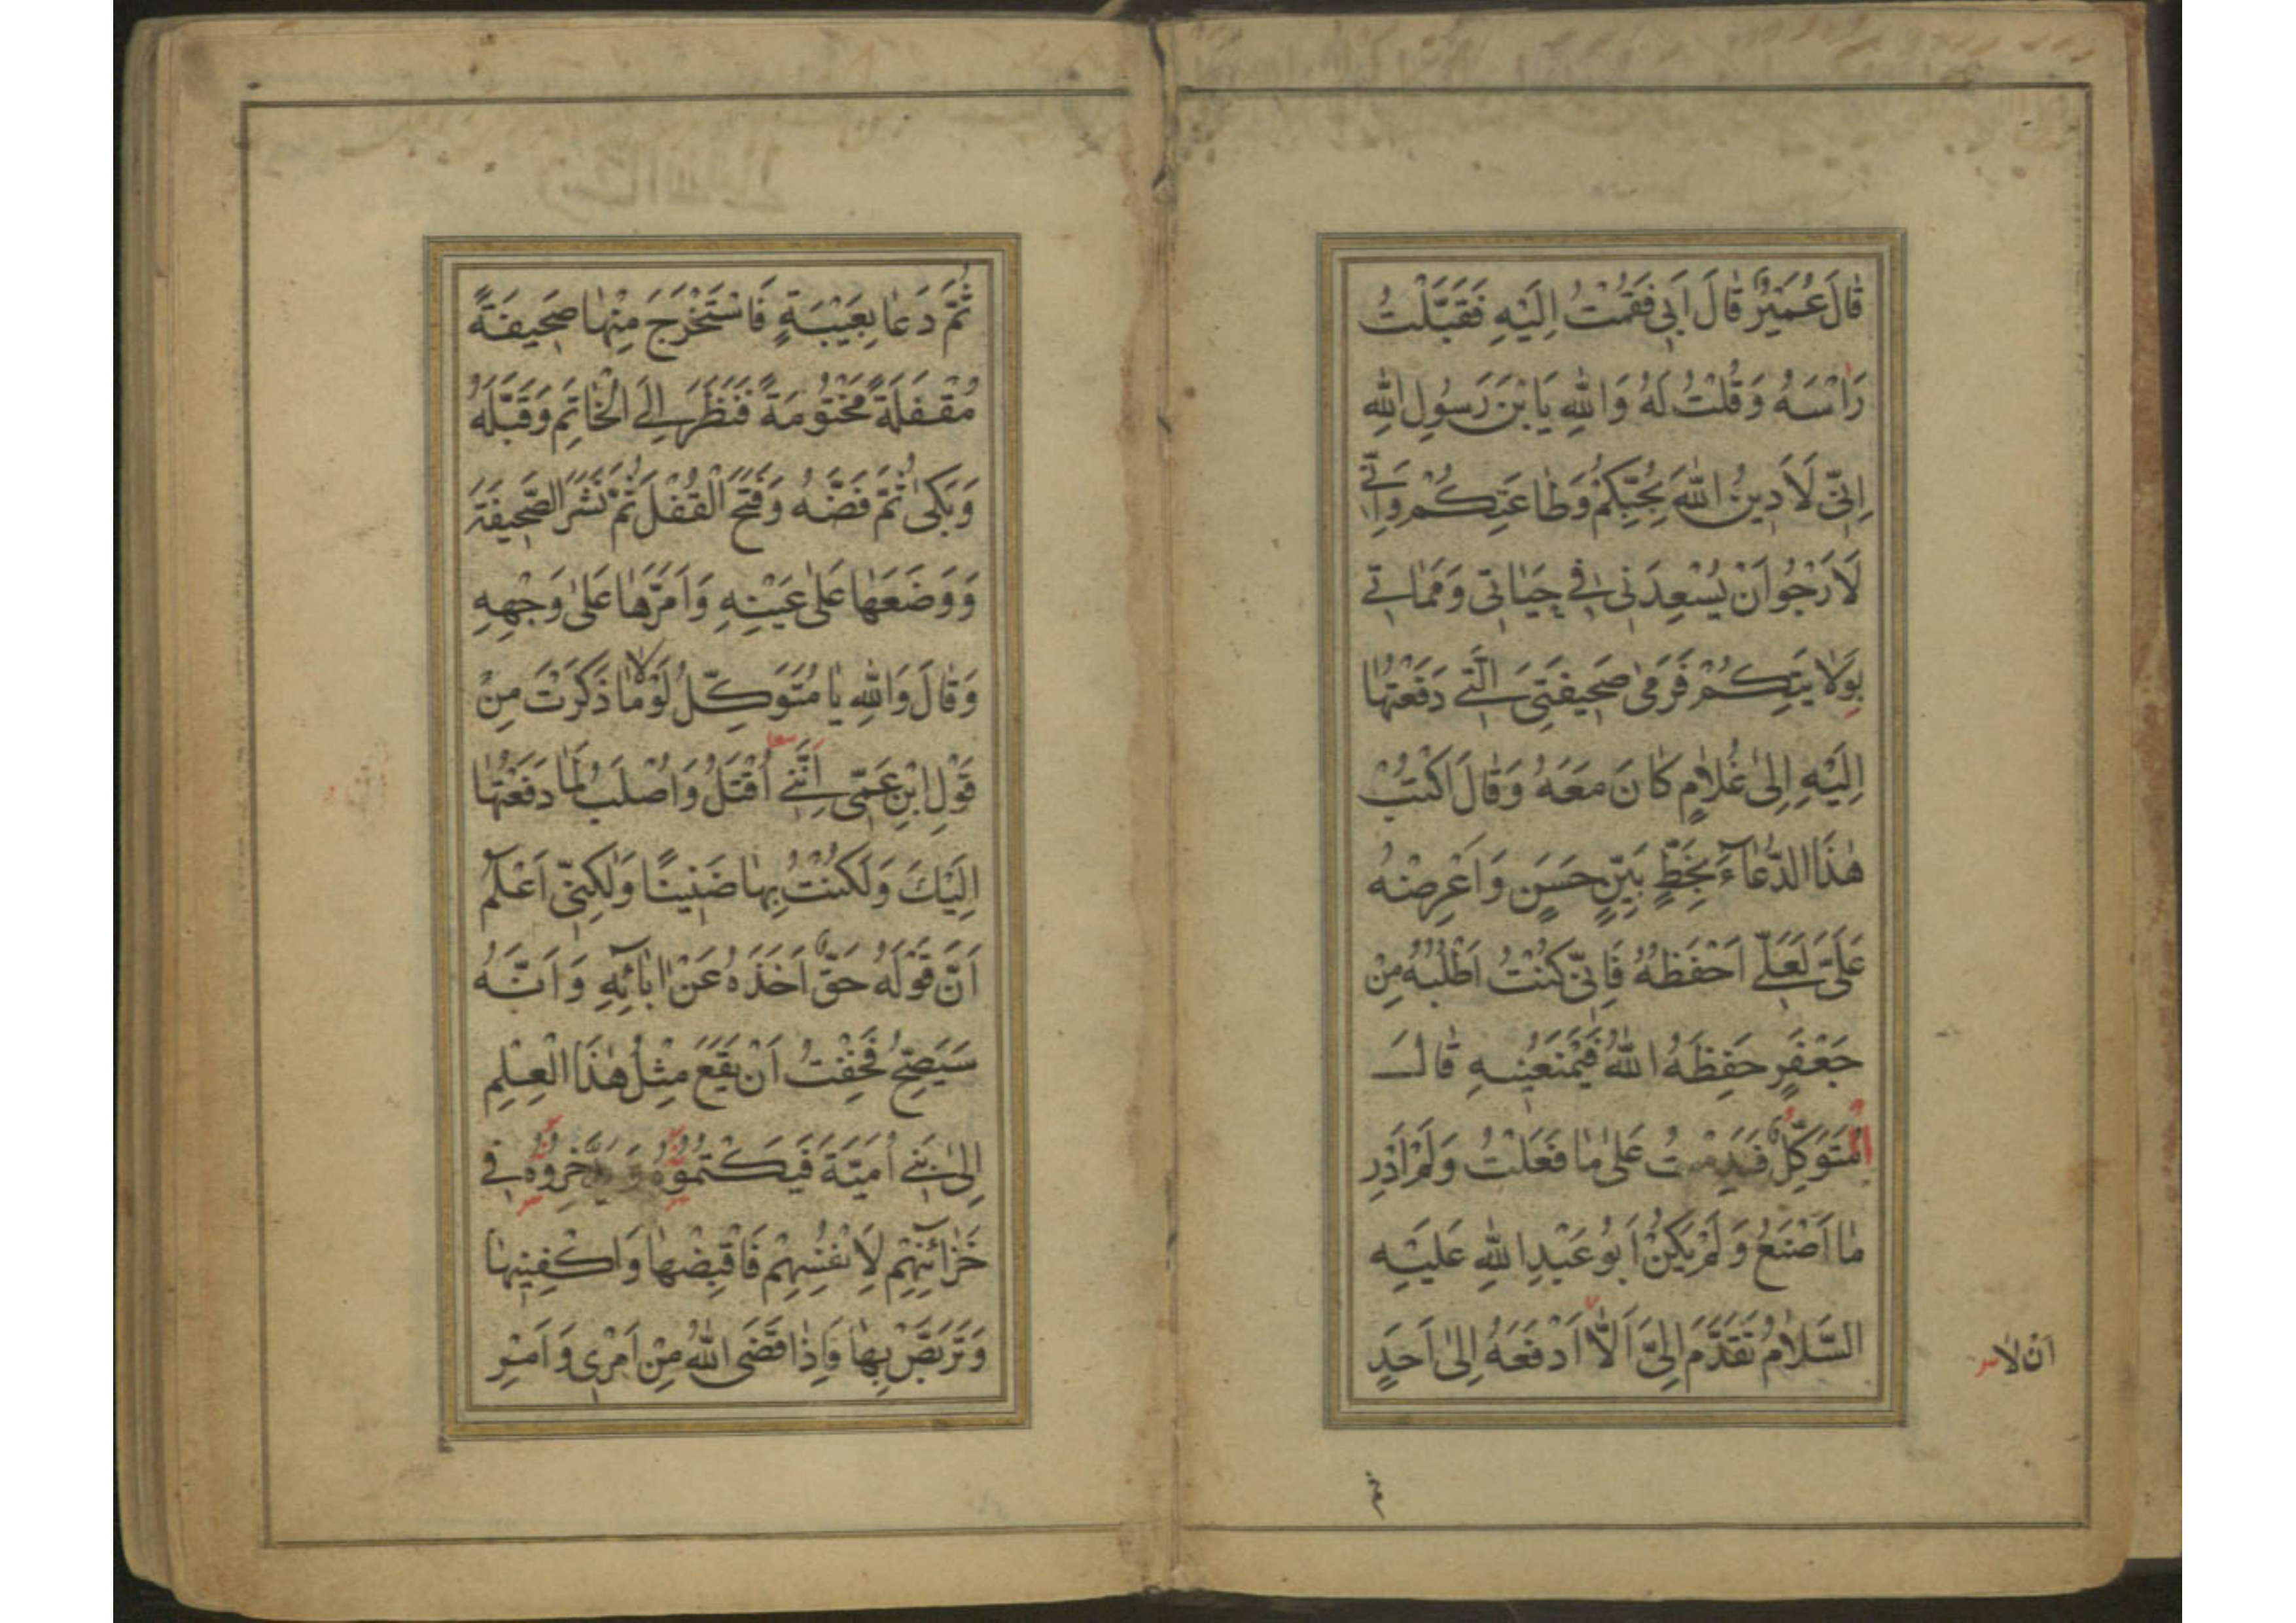 قَالَ عُمَيْرٌ قَالَ اَبِي فَقُمْتُ اِلَيْهِ فَقَبَّلْتُ
رَاْسَهُ وَقُلْتُ لَهُ وَاللهِ يَا بْنَ رَسُولِ اللهِ
اِنِّي لَاَدِينُ اللهَ بِحُبِّكُمْ وَطَاعَتِكُمْ وَاِنِّي
لَاَرْجُو اَنْ يُسْعِدَنِي فِي حَيَاتِي وَمَمَاتِي
بِوَلَايَتِكُمْ فَرَمَى صَحِيفَتِيَ الَّتِي دَفَعْتُهَا
اِلَيْهِ اِلَى غُلَامٍ كَانَ مَعَهُ وَقَالَ اكْتُبْ
هٰذَا الدُّعَاءَ بِخَطٍّ بَيِّنٍ حَسَنٍ وَاعْرِضْهُ
عَلَيَّ لَعَلِّي اَحْفَظُهُ فَاِنِّي كُنْتُ اَطْلُبُهُ مِنْ
جَعْفَرٍ حَفِظَهُ اللهُ فَيَمْنَعُنِيهِ قَالَ
الْمُتَوَكِّلُ فَنَدِمْتُ عَلَى مَا فَعَلْتُ وَلَمْ اَدْرِ
مَا اَصْنَعُ وَلَمْ يَكُنْ اَبُو عَبْدِ اللهِ عَلَيْهِ
السَّلَامُ تَقَدَّمَ اِلَيَّ اَلَّا اَدْفَعَهُ اِلَى اَحَدٍ
اَنْ لَا
ثم
ثُمَّ دَعَا بِعَيْبَةٍ فَاسْتَخْرَجَ مِنْهَا صَحِيفَةً
مُقْفَلَةً مَخْتُومَةً فَنَظَرَ اِلَى الْخَاتِمِ وَقَبَّلَهُ
وَبَكَى ثُمَّ فَضَّهُ وَفَتَحَ الْقُفْلَ ثُمَّ نَشَرَ الصَّحِيفَةَ
وَوَضَعَهَا عَلَى عَيْنِهِ وَاَمَرَّهَا عَلَى وَجْهِهِ
وَقَالَ وَاللهِ يَا مُتَوَكِّلُ لَوْلَا مَا ذَكَرْتَ مِنْ
قَوْلِ ابْنِ عَمِّي اِنَّنِي اُقْتَلُ وَاُصْلَبُ لَمَا دَفَعْتُهَا
اِلَيْكَ وَلَكُنْتُ بِهَا ضَنِينًا وَلٰكِنِّي اَعْلَمُ
اَنَّ قَوْلَهُ حَقٌّ اَخَذَهُ عَنْ اٰبَائِهِ وَاَنَّهُ
سَيَصِحُّ فَخِفْتُ اَنْ يَقَعَ مِثْلُ هٰذَا الْعِلْمِ
اِلَى بَنِي اُمَيَّةَ فَيَكْتُمُوهُ وَيَدَّخِرُوهُ فِي
خَزَائِنِهِمْ لِاَنْفُسِهِمْ فَاقْبِضْهَا وَاكْفِنِيهَا
وَتَرَبَّصْ بِهَا فَاِذَا قَضَى اللهُ مِنْ اَمْرِي وَاَمْرِ